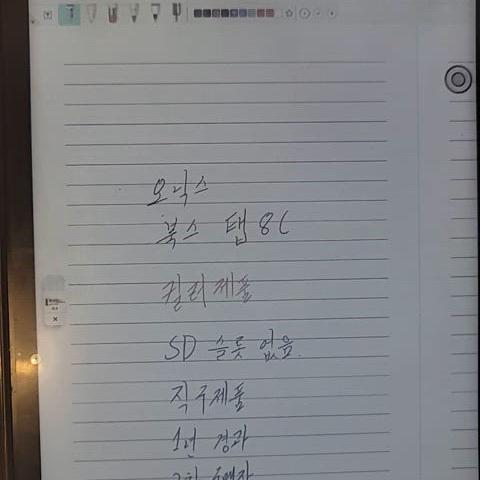 오닉스
북스 탭 8C
컬러제품
SD 슬롯 없음.
직구제품
1년 경과